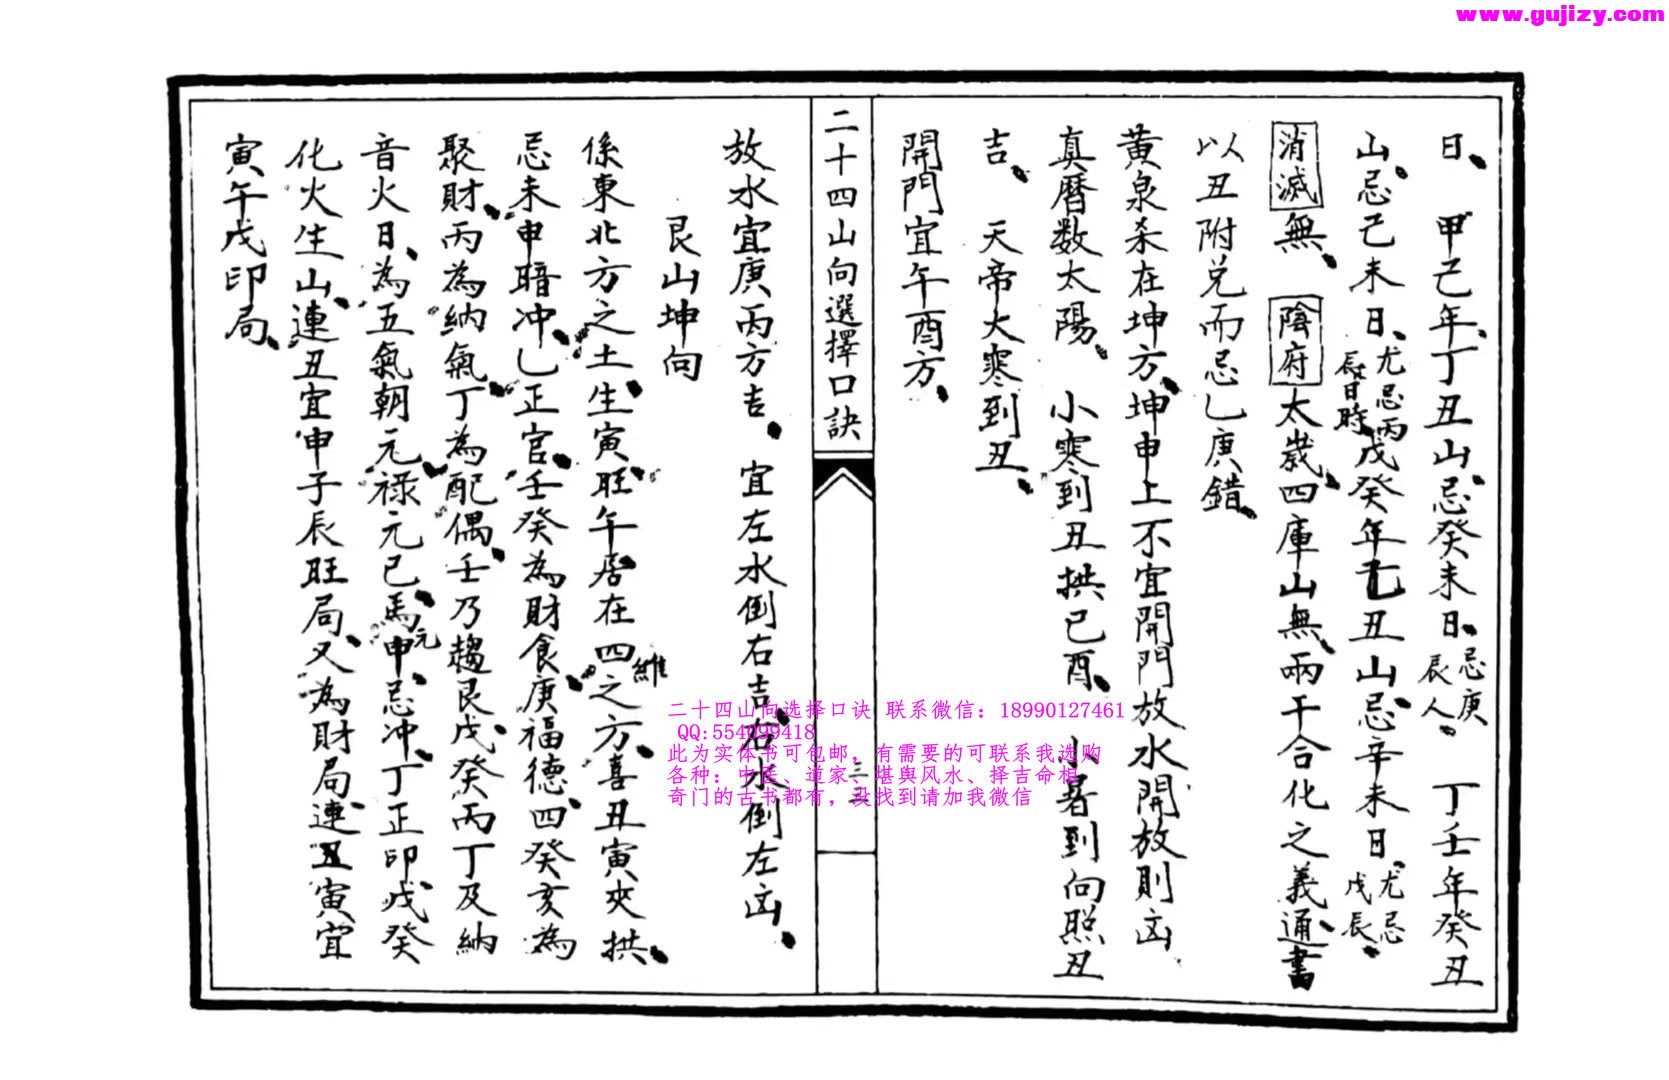 www.gujizy.com
日、甲己年、丁丑山、忌癸未日、忌庚辰人、丁壬年癸丑
山、忌己未日、尤忌丙辰日時、戊癸年乙丑山、忌辛未日、尤忌戊辰、
消滅無、陰府太歲、四庫山無、兩干合化之義、通書
以丑附兌而忌乙庚錯、
黃泉杀在坤方、坤申上不宜開門放水開放則凶
真曆数太陽、小寒到丑拱巳酉、小暑到向照丑
吉、天帝大寒到丑、
開門宜午酉方、
二十四山向選擇口訣
三三
放水宜庚丙方吉、宜左水倒右吉、右水倒左凶、
艮山坤向
係東北方之土、生寅、旺午、居在四維之方、喜丑寅夾拱、
忌未申暗冲、乙正官、壬癸為財食、庚福德、四癸亥為
聚財、丙為納氣、丁為配偶、壬乃趨艮、戊癸丙丁及納
音火日、為五氣朝元、祿元巳、馬元申、忌冲、丁正印、戊癸
化火生山、連丑宜申子辰旺局、又為財局、連丑寅宜
寅午戌印局、
二十四山向选择口诀 联系微信：18990127461
QQ:554099418
此为实体书可包邮，有需要的可联系我选购
各种：中医、道家、堪舆风水、择吉命相
奇门的古书都有，没找到请加我微信